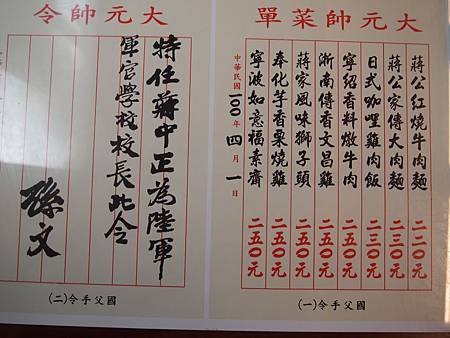 大元帥菜單
蔣公紅燒牛肉麵 二二〇元
蔣公家傳大肉麵 二三〇元
日式咖哩雞肉飯 二三〇元
寧紹香料燉牛肉 二五〇元
浙南傳香文昌雞 二五〇元
蔣家風味獅子頭 二五〇元
奉化芋香栗燒雞 二五〇元
寧波如意福素齋 二五〇元
中華民國一〇〇年四月一日
國父手令(一)
大元帥令
特任蔣中正為陸軍
軍官學校校長此令
孫文
國父手令(二)